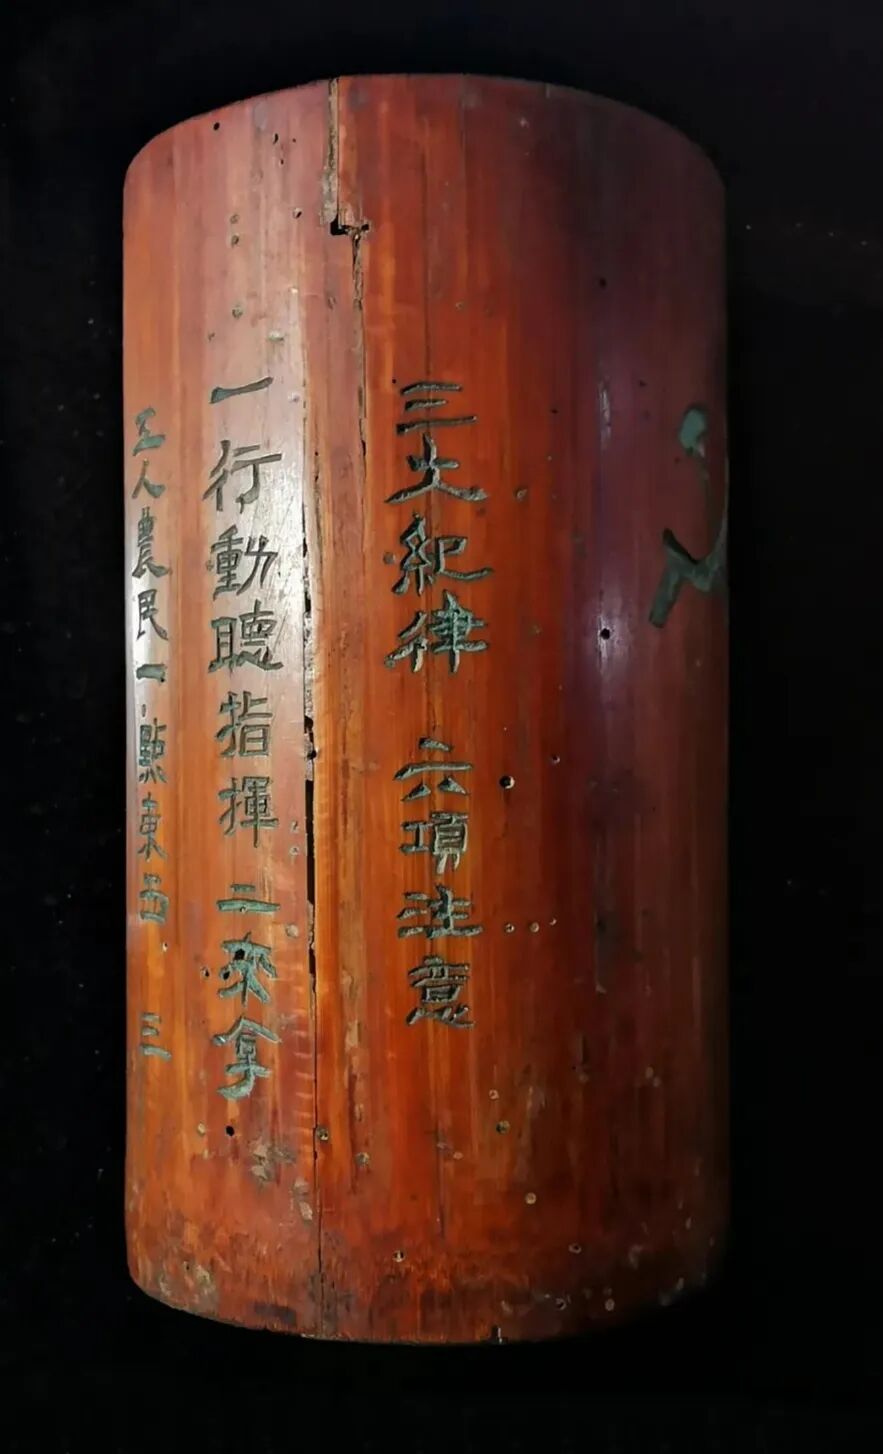 三大紀律 六項注意
一行動聽指揮 二不拿
工人農民一點東西 三